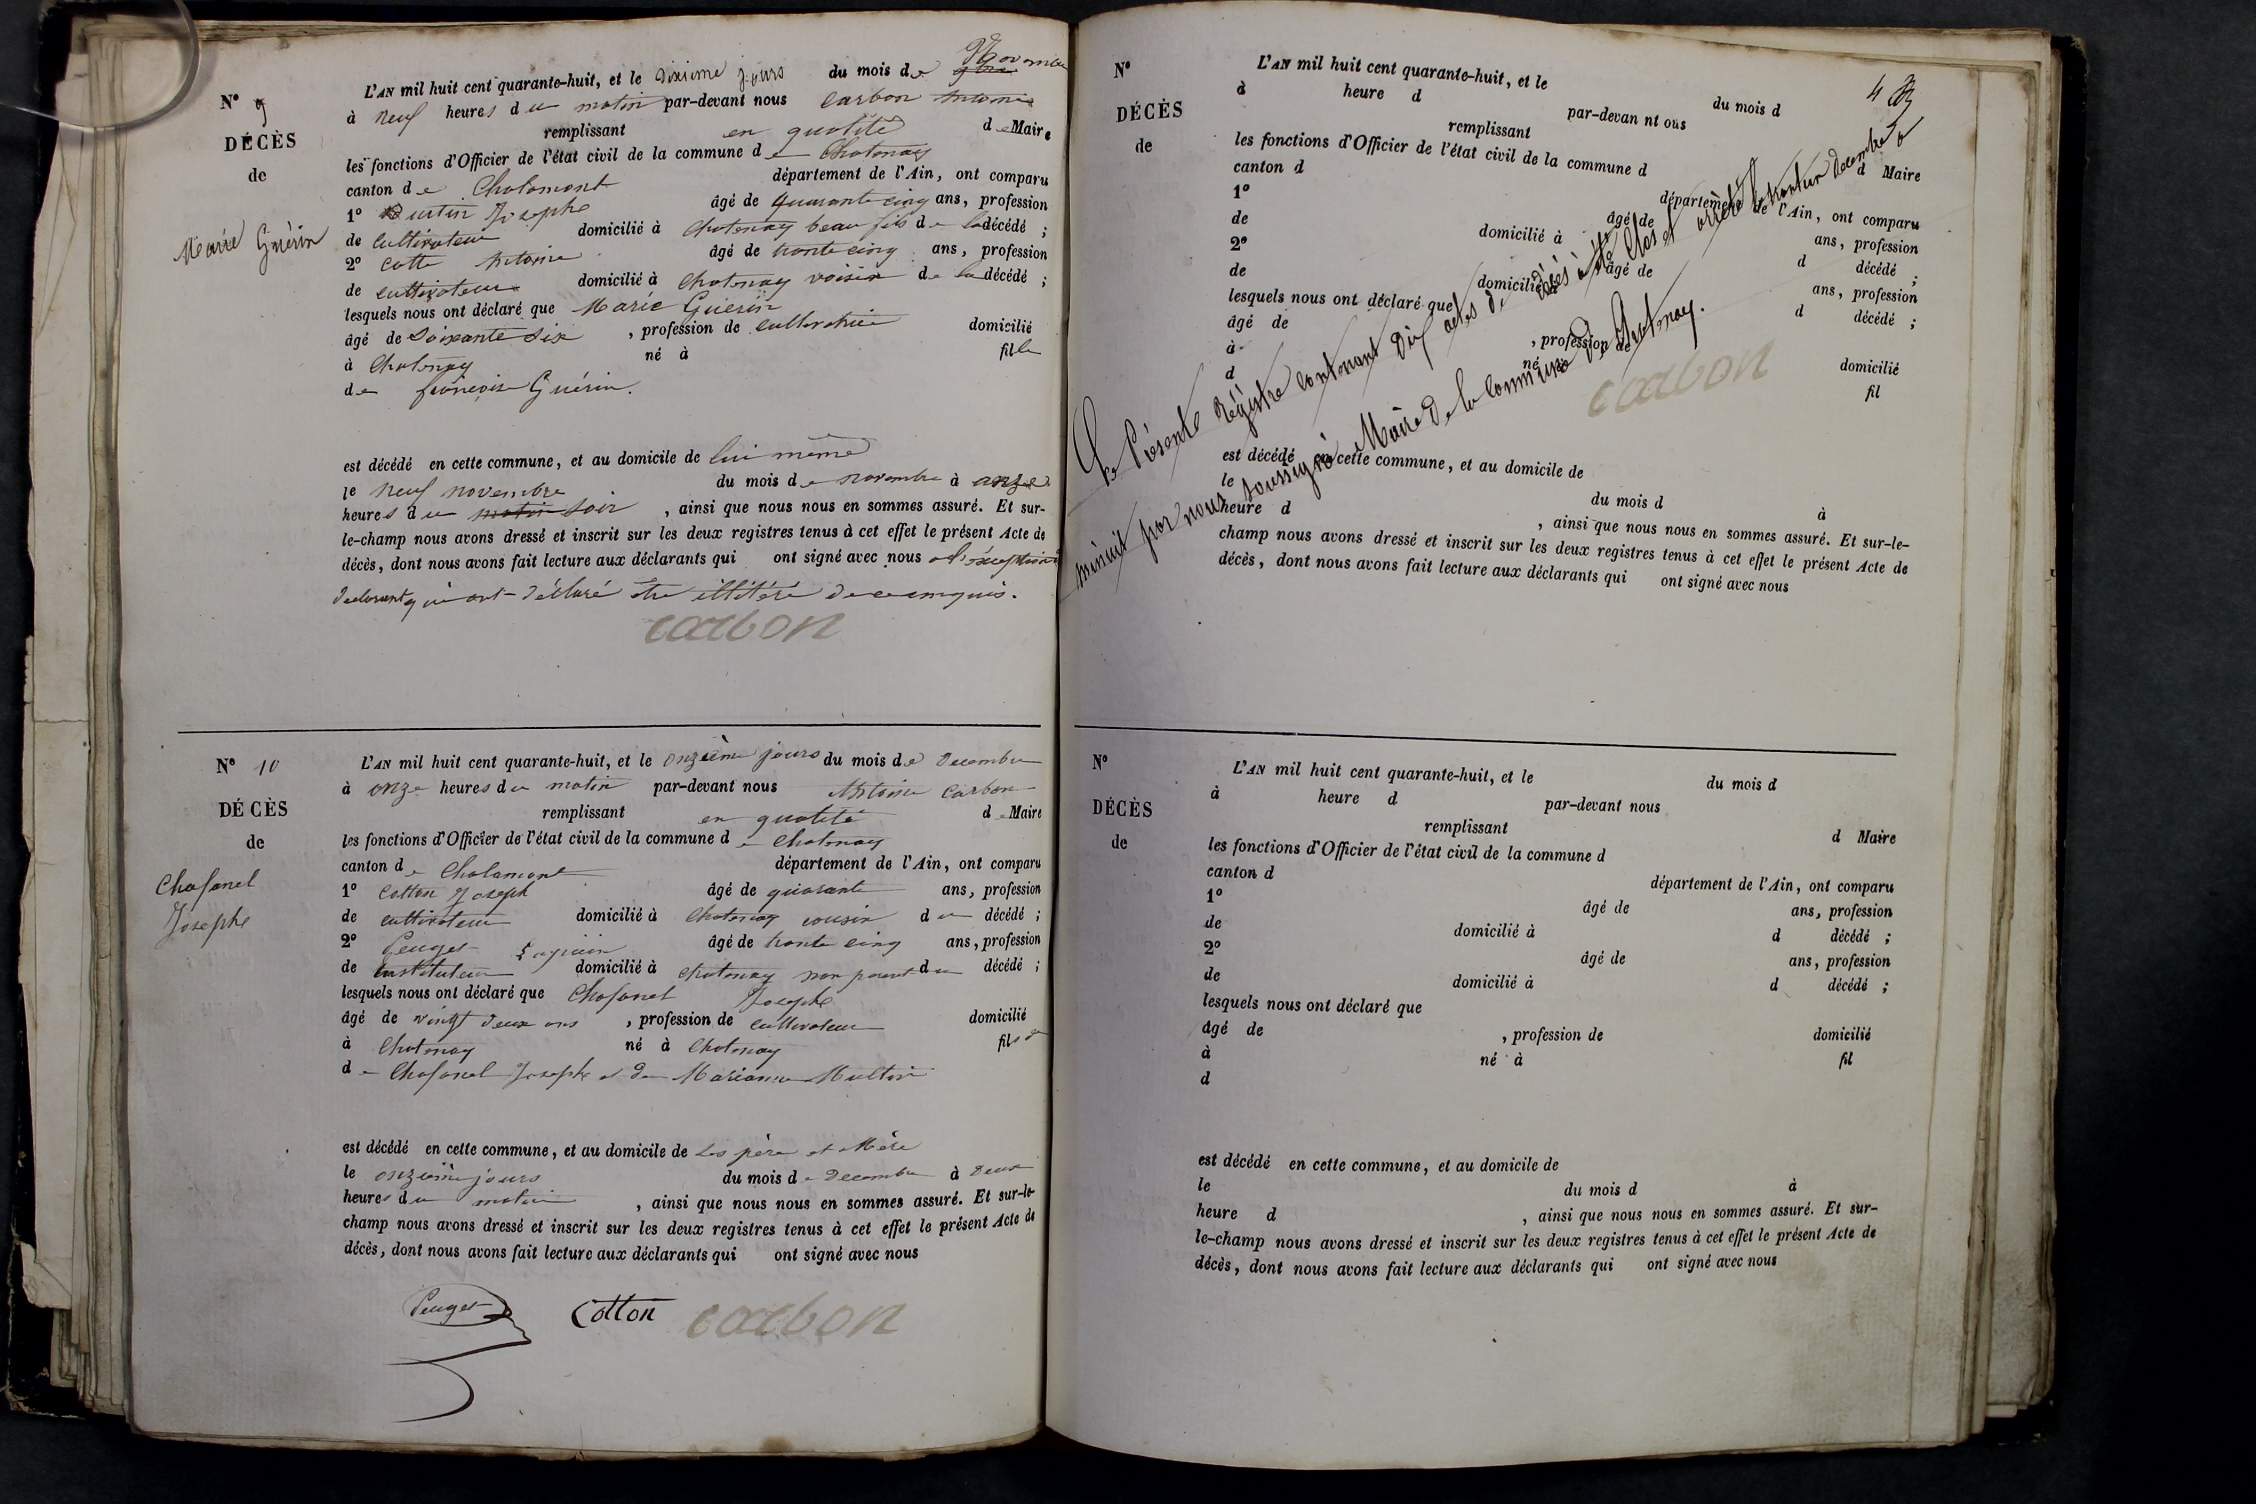 N° 9
DÉCÈS
de
Marie Guérin
L'AN mil huit cent quarante-huit, et le dixieme jours du mois de 9bre Novembre
à neuf heures du matin par-devant nous carbon antoine
remplissant en qualité de Maire
les fonctions d'Officier de l'état civil de la commune de Chatenay
canton de Chalamont département de l'Ain, ont comparu
1° Josephe âgé de quarante cinq ans, profession
de cultivateur domicilié à chatenay beau fils de la décédé ;
2° cotte Antoine âgé de trente cinq ans, profession
de cultivateur domicilié à chatenay voisin de la décédé ;
lesquels nous ont déclaré que Marie Guérin
âgé de Soixante six , profession de cultivatrice domicilié
à Chatenay né à fille
de françois Guérin.
est décédé en cette commune, et au domicile de lui même
le neuf novembre du mois de novembre à onze
heures du matin soir , ainsi que nous nous en sommes assuré. Et sur-
le-champ nous avons dressé et inscrit sur les deux registres tenus à cet effet le présent Acte de
décès, dont nous avons fait lecture aux déclarants qui ont signé avec nous a l'exception
declarant qui ont déclaré être illitéré de ce enquis.
carbon
N° 10
DÉCÈS
de
Chafanel
Josephe
L'AN mil huit cent quarante-huit, et le onzième jours du mois de decembre
à onze heures du matin par-devant nous Antoine Carbon
remplissant en qualité de Maire
les fonctions d'Officier de l'état civil de la commune de Chatenay
canton de Chalamont département de l'Ain, ont comparu
1° Cotton Joseph âgé de quarante ans, profession
de cultivateur domicilié à Chatenay cousin du décédé ;
2° Peuget âgé de trente cinq ans, profession
de instituteur domicilié à chatenay non parent du décédé ;
lesquels nous ont déclaré que Chafanel Josephe
âgé de vingt deux ans , profession de cultivateur domicilié
à Chatenay né à Chatenay fils
de Chafanel Josephe et de Marianne
est décédé en cette commune, et au domicile de ses père et Mère
le onzième jours du mois de decembre à deux
heures du matin , ainsi que nous nous en sommes assuré. Et sur-le-
champ nous avons dressé et inscrit sur les deux registres tenus à cet effet le présent Acte de
décès, dont nous avons fait lecture aux déclarants qui ont signé avec nous
Peuget Cotton carbon
4
N°
DÉCÈS
de
L'AN mil huit cent quarante-huit, et le du mois d
à heure d par-devan nt ous
remplissant d Maire
les fonctions d'Officier de l'état civil de la commune d
canton d département de l'Ain, ont comparu
1° âgé de ans, profession
de domicilié à d décédé ;
2° âgé de ans, profession
de domicilié à d décédé ;
lesquels nous ont déclaré que
âgé de , profession de domicilié
à né à fil
d
Le Présente Régistre contenant Dix actes de décès à été Clos et arrêté le trente un decembre à
minuit par nous soussigné Maire de la Commune de Chatenay.
carbon
est décédé en cette commune, et au domicile de
le du mois d à
heure d , ainsi que nous nous en sommes assuré. Et sur-le-
champ nous avons dressé et inscrit sur les deux registres tenus à cet effet le présent Acte de
décès, dont nous avons fait lecture aux déclarants qui ont signé avec nous
N°
DÉCÈS
de
L'AN mil huit cent quarante-huit, et le du mois d
à heure d par-devant nous
remplissant d Maire
les fonctions d'Officier de l'état civil de la commune d
canton d département de l'Ain, ont comparu
1° âgé de ans, profession
de domicilié à d décédé ;
2° âgé de ans, profession
de domicilié à d décédé ;
lesquels nous ont déclaré que
âgé de , profession de domicilié
à né à fil
d
est décédé en cette commune, et au domicile de
le du mois d à
heure d , ainsi que nous nous en sommes assuré. Et sur-
le-champ nous avons dressé et inscrit sur les deux registres tenus à cet effet le présent Acte de
décès, dont nous avons fait lecture aux déclarants qui ont signé avec nous